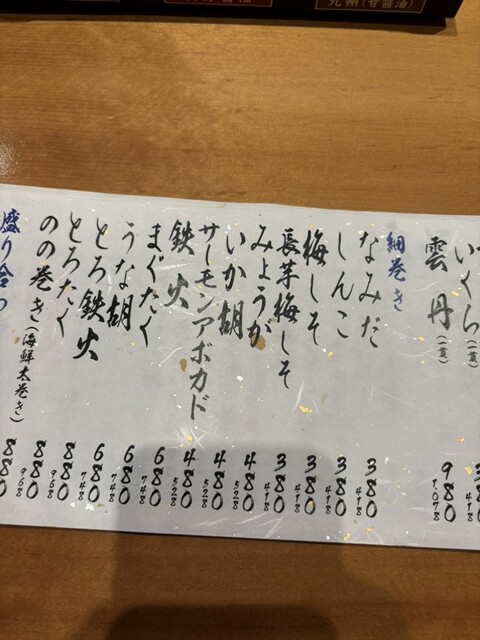 九州(甘醤油)
いくら(一貫)
雲丹(一貫) 980 1,078
細巻き
なみだ 380 418
しんこ 380 418
梅しそ 380 418
長芋梅しそ 380 418
みょうが 480 528
いか胡 480 528
サーモンアボカド 480 528
鉄火 680 748
まぐたく 680 748
うな胡 680 748
とろ鉄火 880 968
とろたく 880 968
のの巻き(海鮮太巻き) 880 968
盛り合